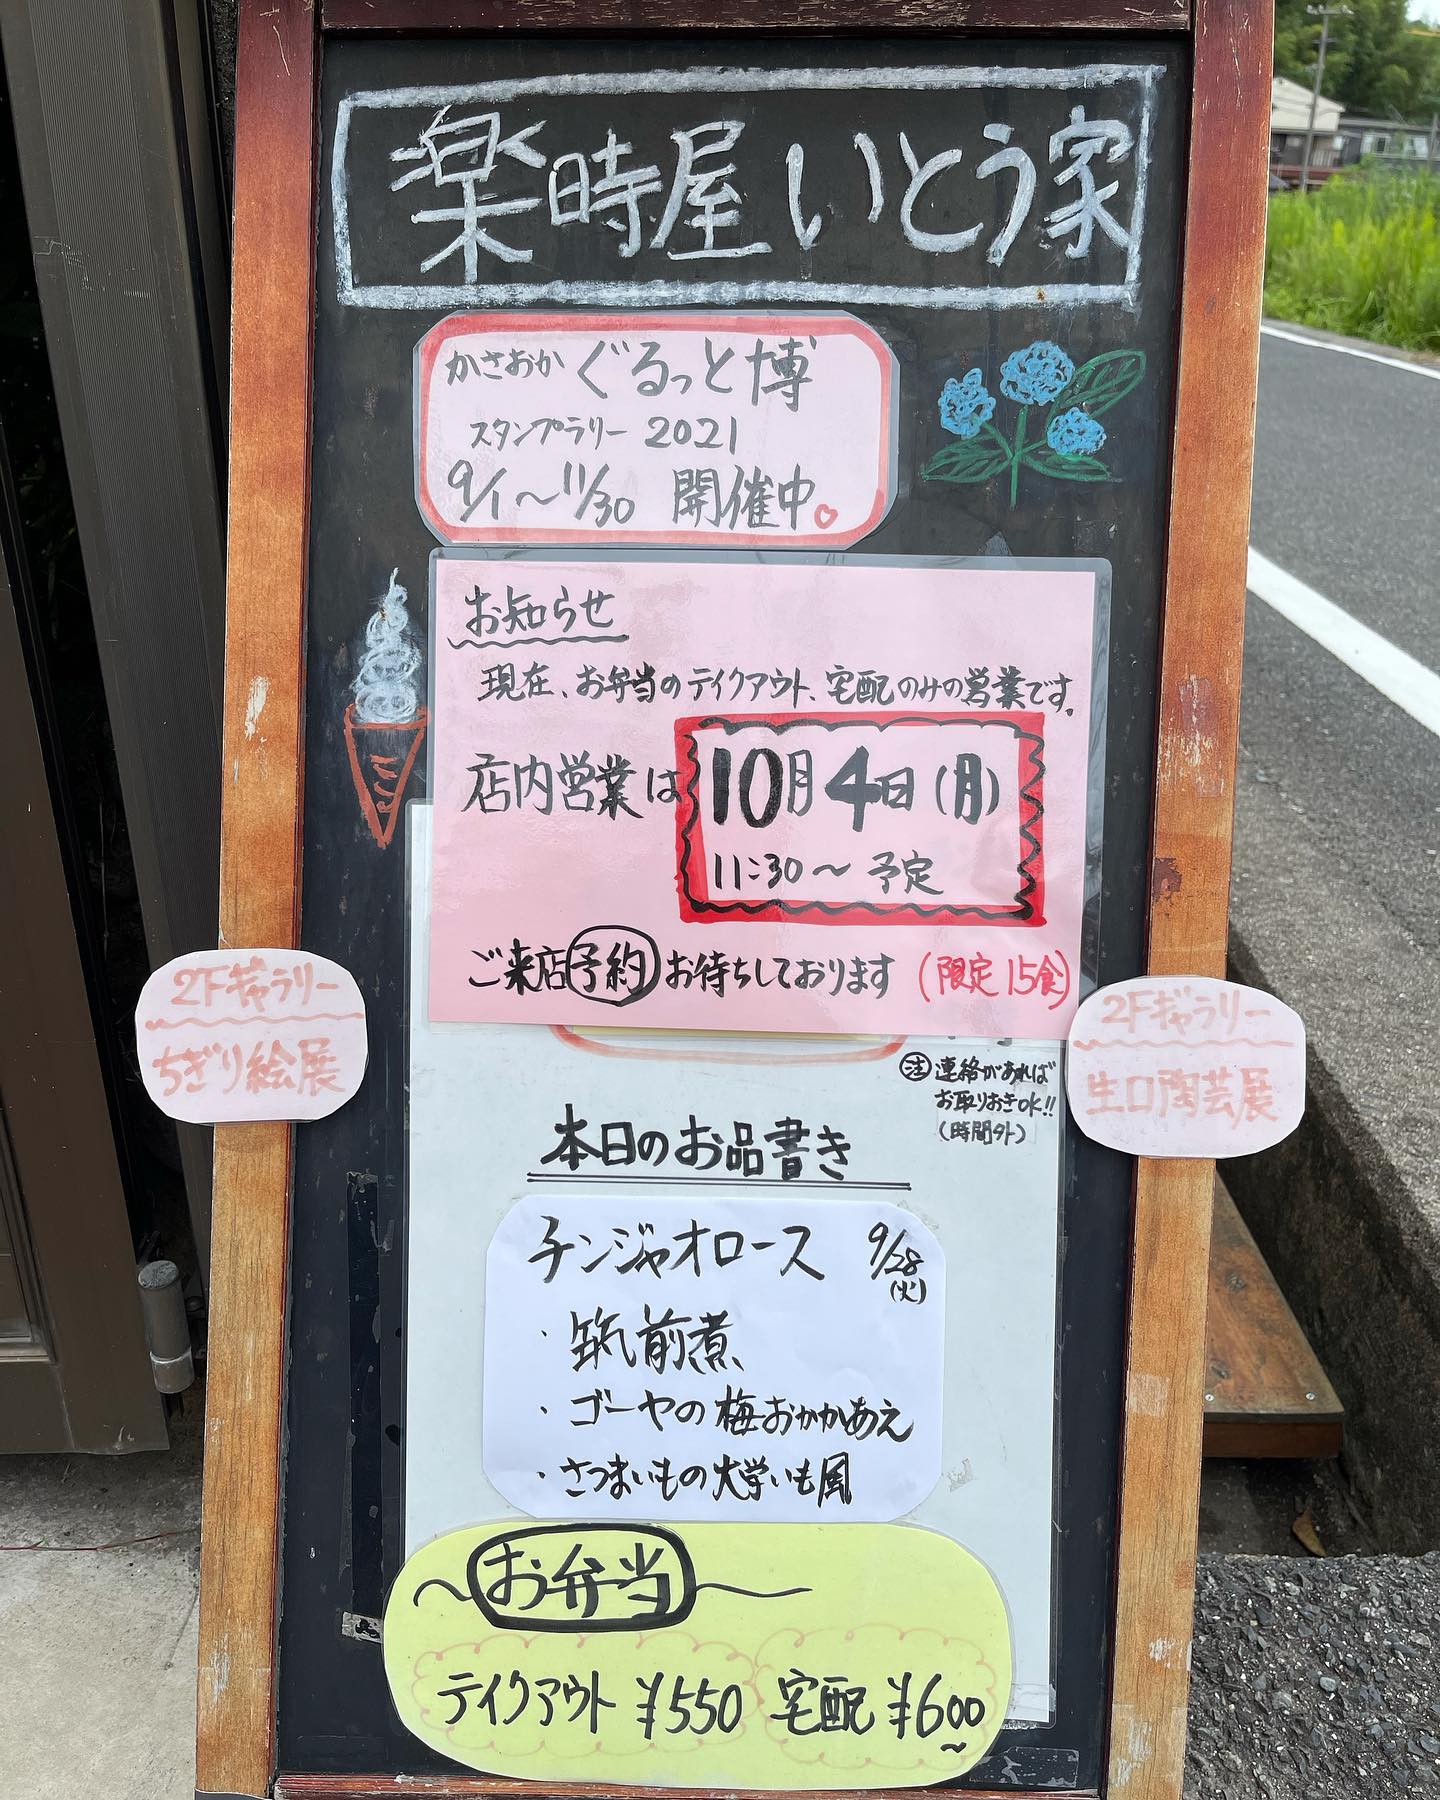 楽時屋いとう家
かさおか ぐるっと博
スタンプラリー 2021
9/1〜11/30 開催中。
お知らせ
現在、お弁当のテイクアウト、宅配のみの営業です。
店内営業は 10月4日(月)
11:30〜予定
ご来店予約お待ちしております (限定15食)
2Fギャラリー
ちぎり絵展
2Fギャラリー
生口陶芸展
注 連絡があれば
お取りおきOK!!
(時間外)
本日のお品書き
チンジャオロース 9/28
(火)
・筑前煮
・ゴーヤの梅おかかあえ
・さつまいもの大学いも風
〜お弁当〜
テイクアウト ¥550 宅配 ¥600〜